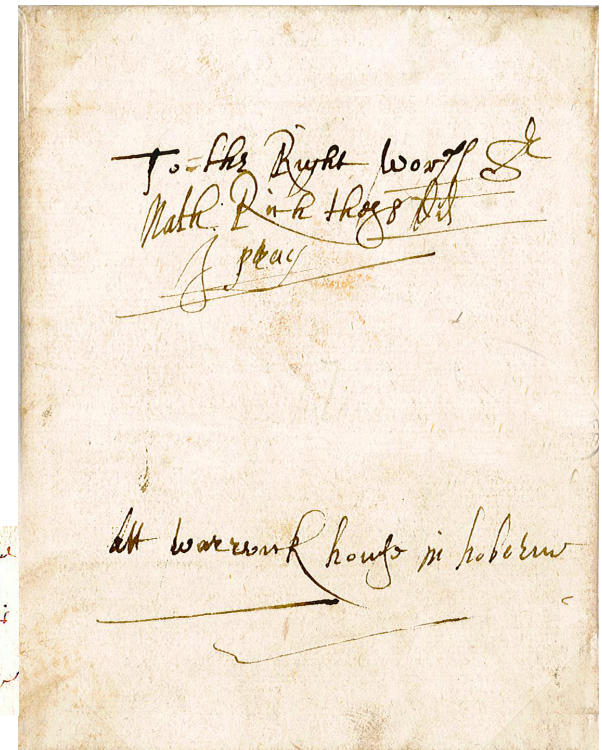 To=the Right worll Sr
Nath: Rich thes dd
I pray
att warrwick house in holborne